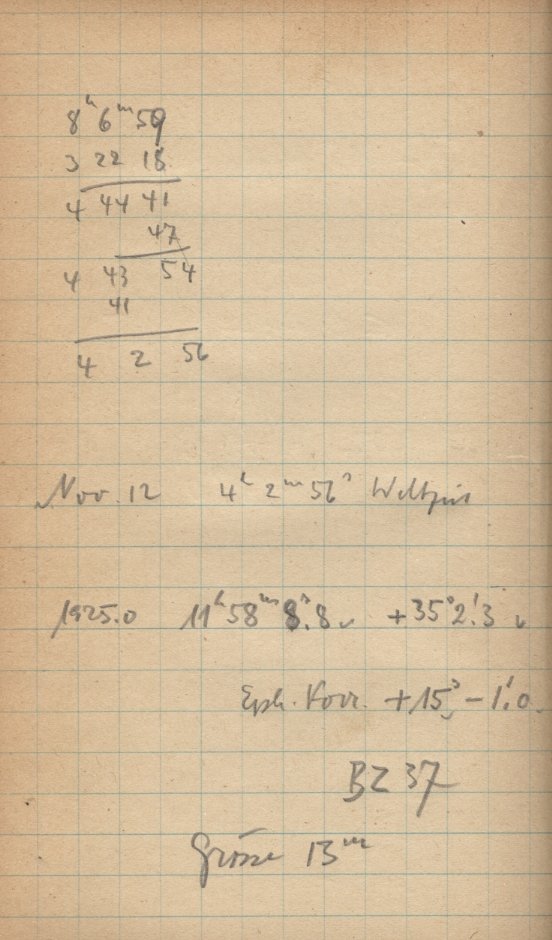 8ʰ 6ᵐ 59
3 22 18
4 44 41
47
4 43 54
41
4 2 56
Nov. 12 4ʰ 2ᵐ 56ˢ Weltzeit
1925.0 11ʰ 58ᵐ 8ˢ.8 +35°2'.3
Eph. Korr. +15ˢ −1'.0
BZ 37
Grösse 13ᵐ